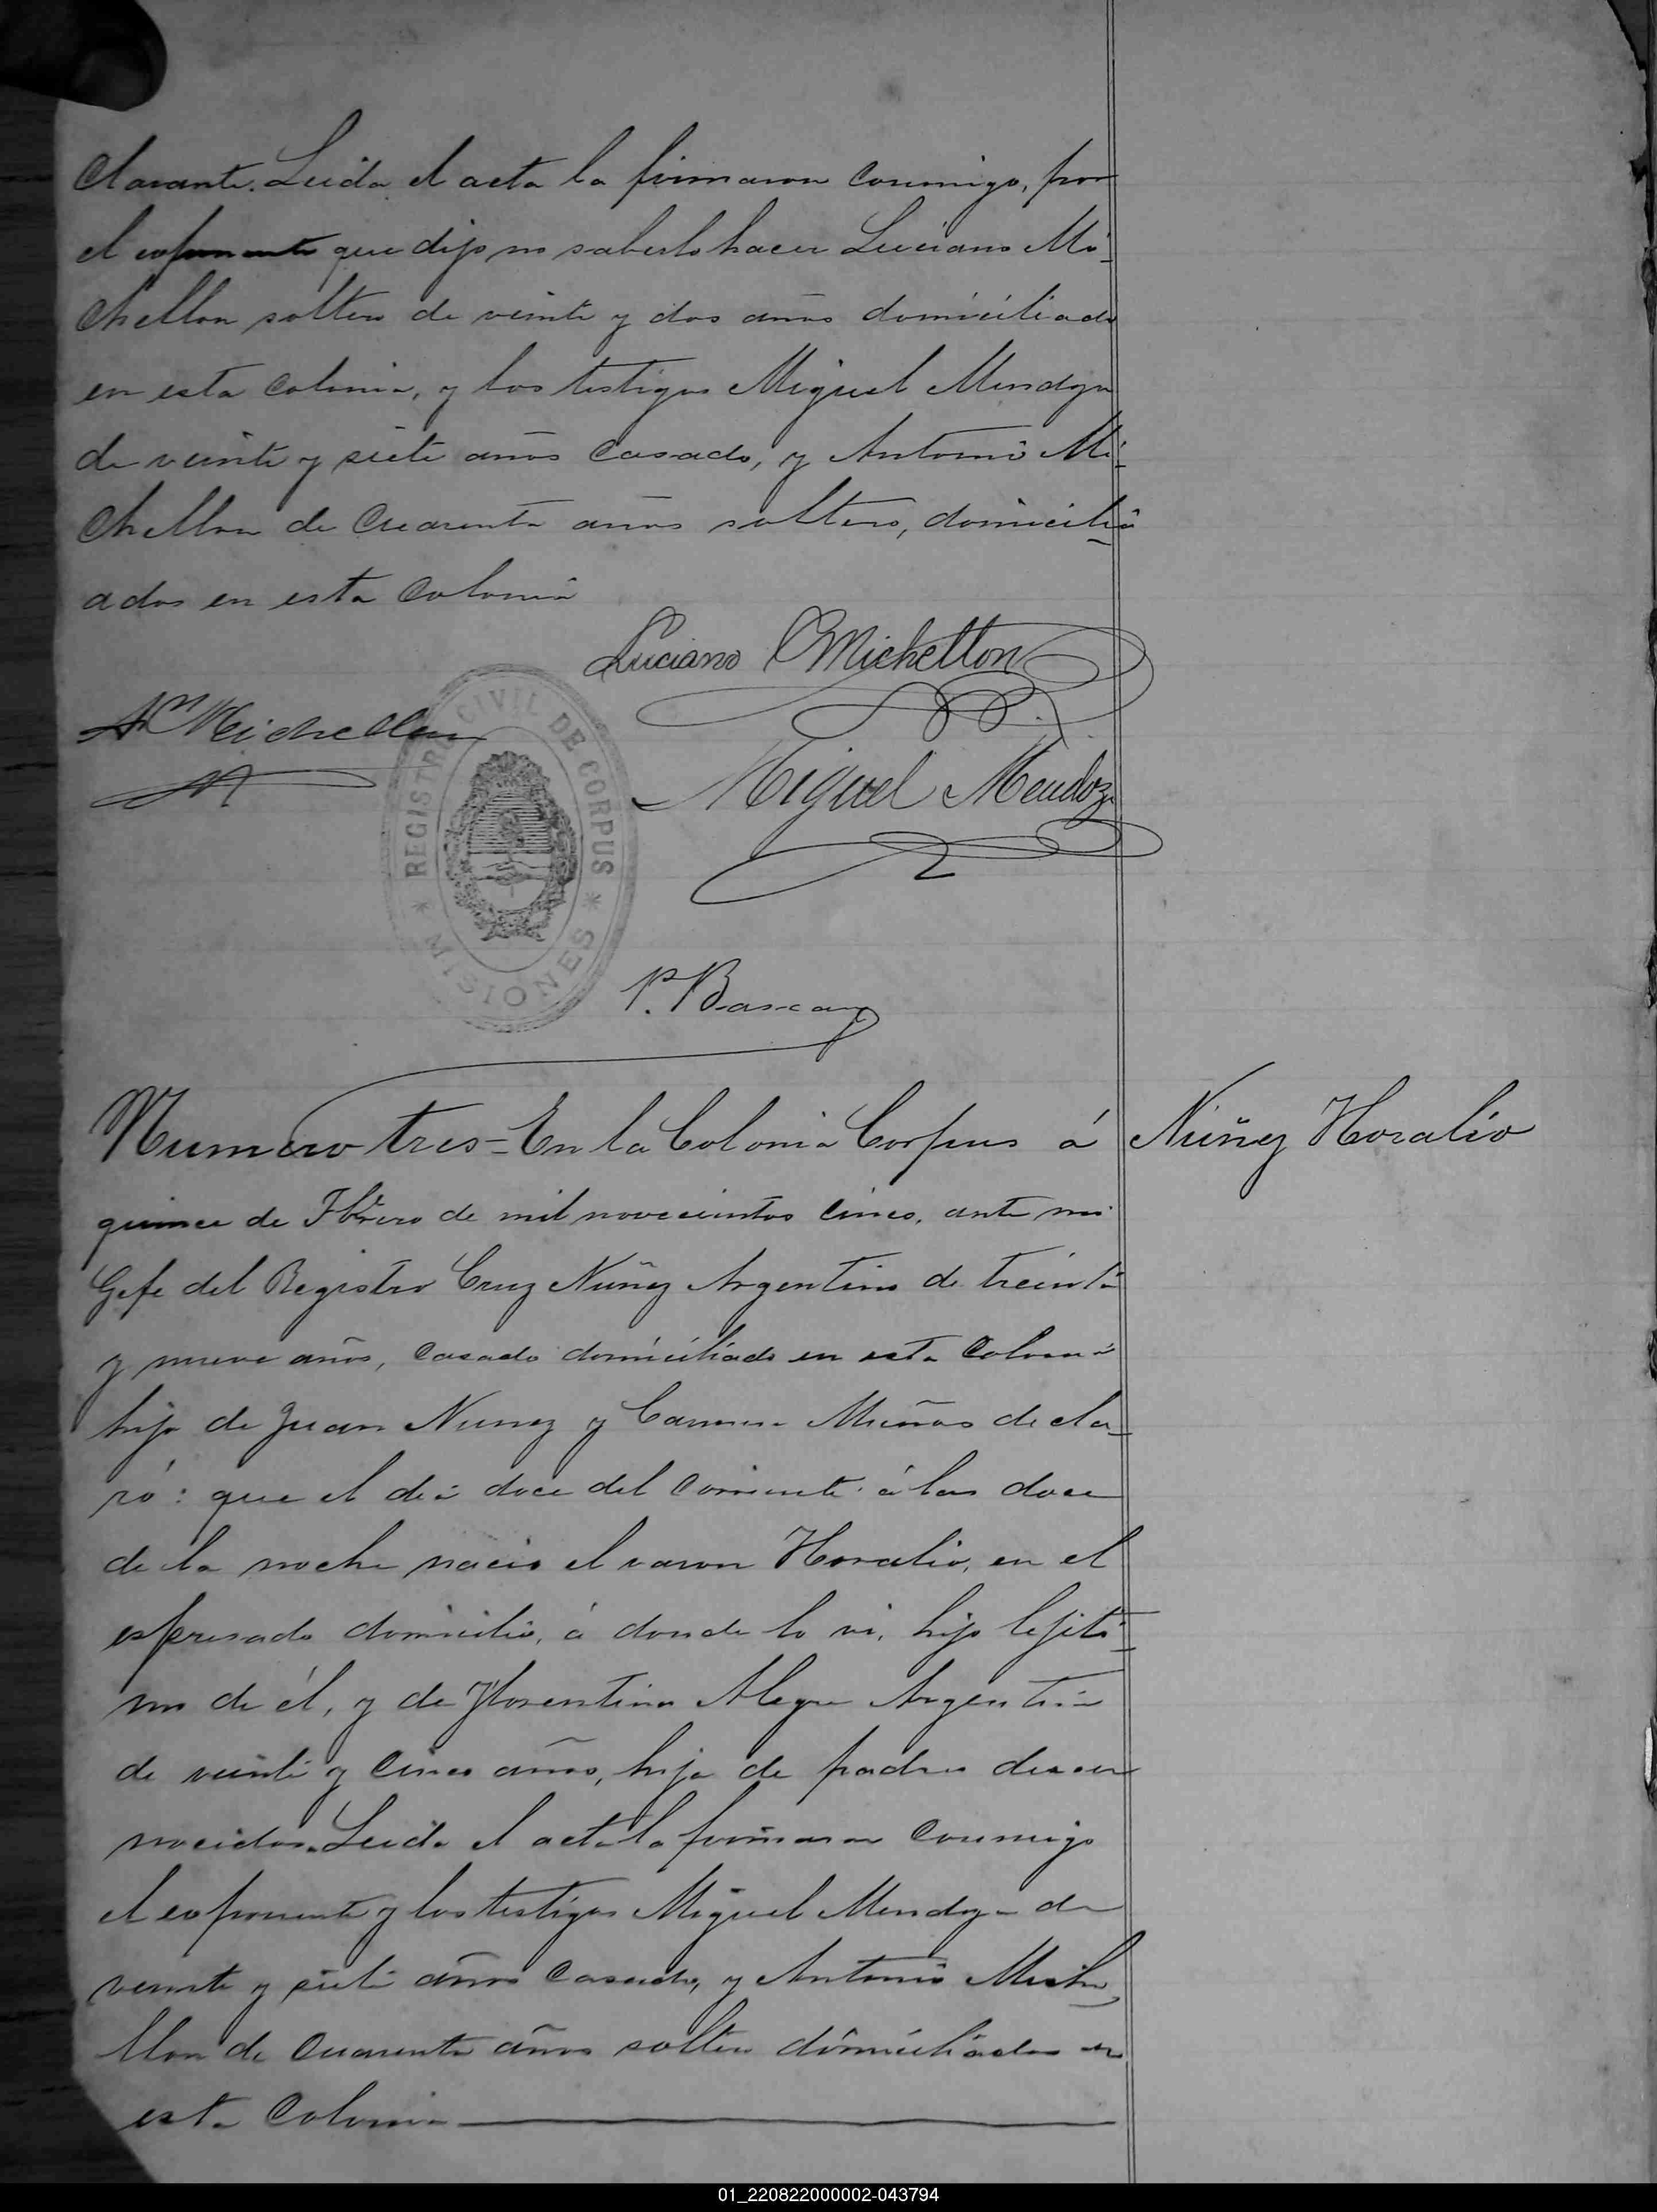 clarante. Leida el acta la firmaron conmigo, por
el esponente que dijo no saberlo hacer Luciano Mi-
chellon soltero de veinte y dos años domiciliado
en esta Colonia, y los testigos Miguel Mendoza
de veinte y siete años casado, y Antonio Mi-
chellon de cuarenta años soltero, domicili-
ados en esta Colonia
Luciano Michellon
An Michellon
Miguel Mendoza
REGISTRO CIVIL DE CORPUS
* MISIONES *
P. Bascary
Numero tres - En la Colonia Corpus á
Núñez Horalio
quince de Fbrero de mil novecientos cinco, ante mi
Gefe del Registro Cruz Nuñez Argentino de treinta
y nueve años, casado domiciliado en esta Colonia
hijo de Juan Nunez y Carmen Muños decla-
ró: que el dia doce del corriente á las doce
de la noche nacio el varon Horalio, en el
espresado domicilio, á donde lo vi, hijo lejiti-
mo de él, y de Florentina Alegre Argentina
de veinte y cinco años, hija de padres desco-
nocidos. Leida el acta la firmaron conmigo
el esponente y los testigos Miguel Mendoza de
veinte y siete años casado, y Antonio Miche-
llon de cuarenta años soltero domiciliados en
esta Colonia
01_220822000002-043794